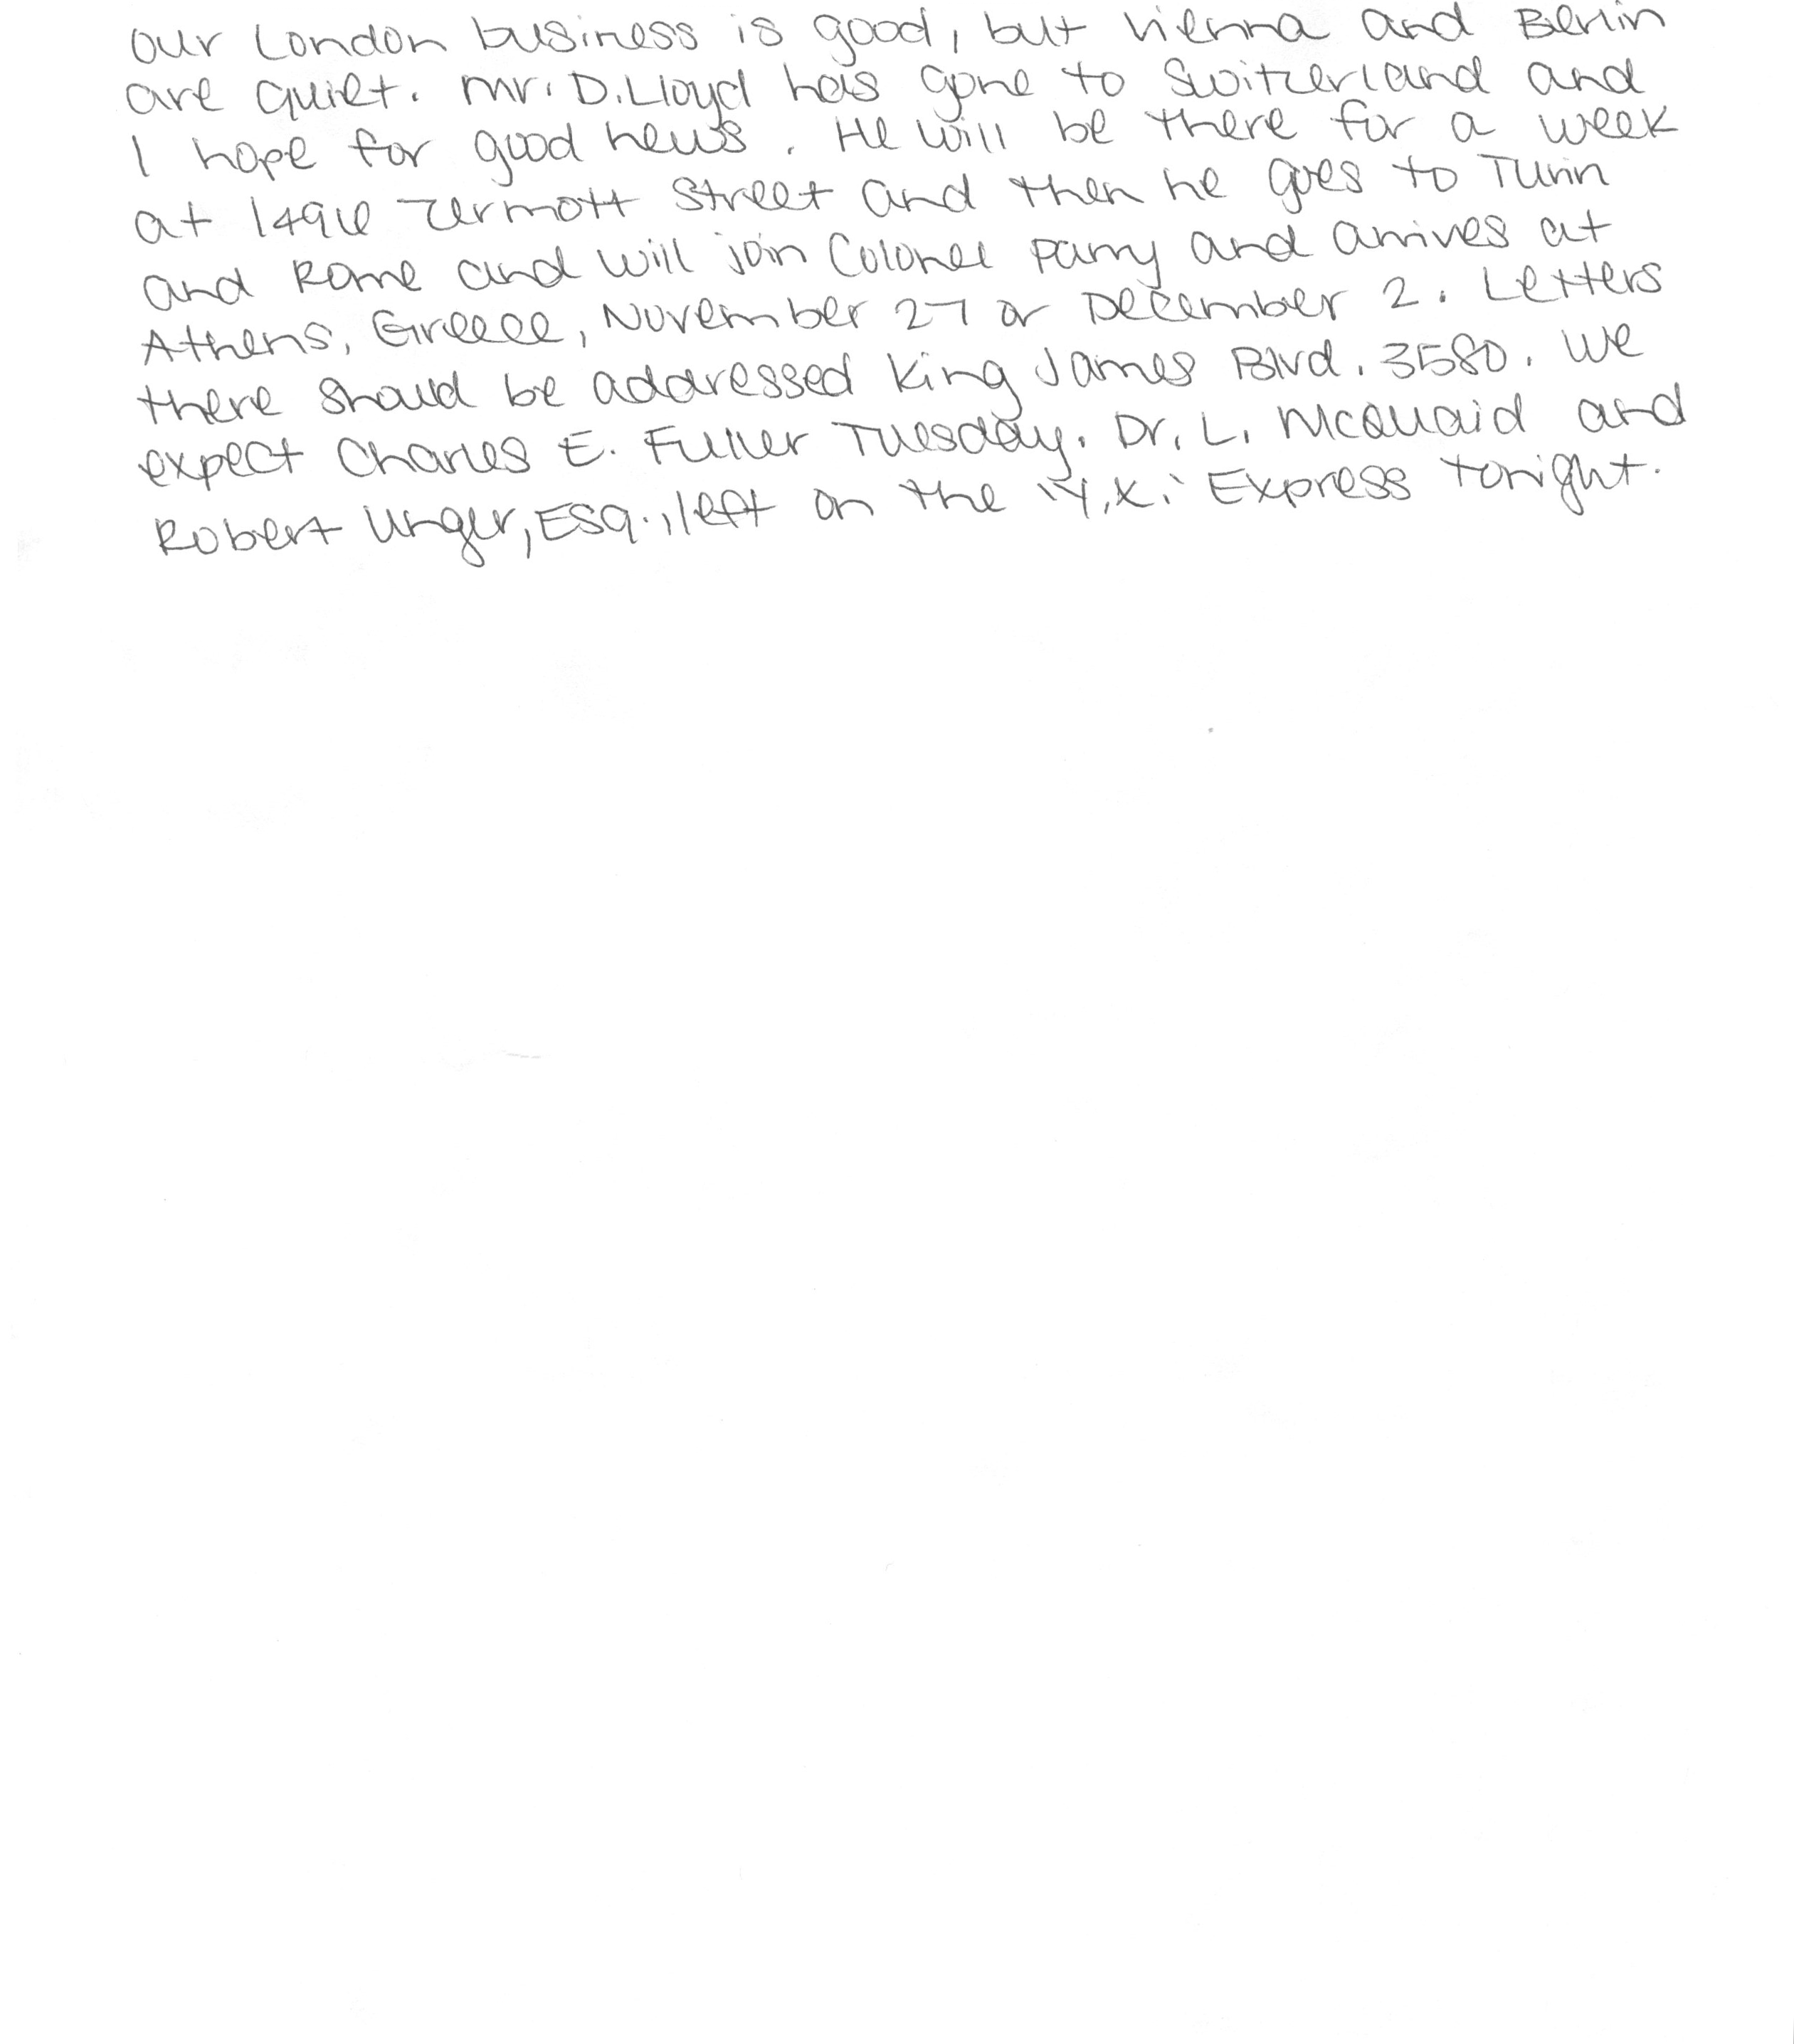 our London business is good, but Vienna and Berlin
are quiet. Mr. D. Lloyd has gone to Switzerland and
I hope for good news. He will be there for a week
at 1496 Zermott Street and then he goes to Turin
and Rome and will join Colonel Parry and arrives at
Athens, Greece, November 27 or December 2. Letters
there should be addressed King James Blvd. 3580. We
expect Charles E. Fuller Tuesday. Dr. L. McQuaid and
Robert Unger, Esq., left on the "Y.X." Express tonight.